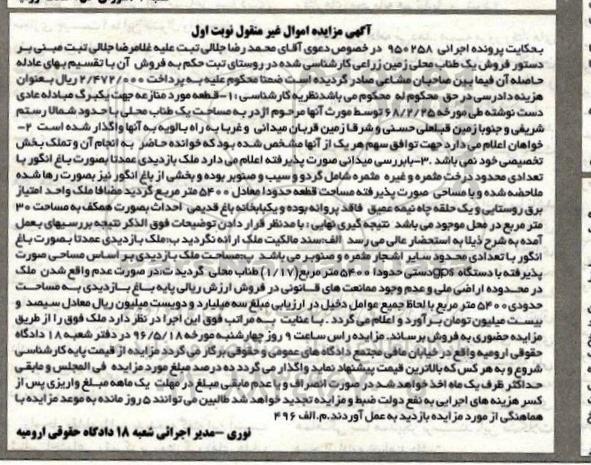 آگهی مزایده اموال غیر منقول نوبت اول
بحکایت پرونده اجرائی ۹۵۰۲۵۸ در خصوص دعوی آقای محمد رضا جلالی ثبت علیه غلامرضا جلالی ثبت مبنی بر
دستور فروش یک طناب محلی زمین زراعی کارشناسی شده در روستای ثبت حکم به فروش آن با تقسیم بهای عادله
حاصله آن فیما بین صاحبان مشاعی صادر گردیده است ضمنا محکوم علیه به پرداخت ۲/۴۷۲/۰۰۰ ریال بعنوان
هزینه دادرسی در حق محکوم له محکوم می باشد نظریه کارشناسی :۱-قطعه مورد منازعه جهت یکبرگ مبادله عادی
دست نوشته طی مورخه ۶۸/۲/۲۵ توسط مورث آنها مرحوم اژدر به مساحت یک طناب محلی با حدود شمالا رستم
شریفی و جنوبا زمین قبلعلی حسنی و شرقا زمین قربان میدانی و غربا به راه بالویه به آنها واگذار شده است ۲-
خواهان اعلام می دارد جهت توافق سهم هر یک از آنها مشخص شده بود که خوانده حاضر به انجام آن و تملک بخش
تخصیصی خود نمی باشد .۳-بابررسی میدانی صورت پذیرفته اعلام می دارد ملک بازدیدی عمدتا بصورت باغ انگور با
تعدادی محدود درخت مثمره و غیره مثمره شامل گردو و سیب و صنوبر بوده و بخشی از باغ انگور نیز بصورت رها شده
ملاحضه شده و با مساحی صورت پذیرفته مساحت قطعه حدودا معادل ۵۴۰۰ متر مربع گردید مضافا ملک واحد امتیاز
برق روستایی و یک حلقه چاه نیمه عمیق فاقد پروانه بوده و یکبابخانه باغ قدیمی احداث بصورت همکف به مساحت ۳۰
متر مربع در محل موجود می باشد نتیجه گیری نهایی : با مدنظر قرار دادن توضیحات فوق الذکر نتیجه بررسیهای بعمل
آمده به شرح ذیلا به استحضار عالی می رسد الف:سند مالکیت ملک ارائه نگردید ب:ملک بازدیدی عمدتا بصورت باغ
انگور با تعدادی محدود سایر اشجار مثمره و صنوبر می باشد پ:مساحت ملک بازدیدی بر اساس مساحی صورت
پذیرفته با دستگاه gpsدستی حدودا ۵۴۰۰ متر مربع(۱/۱۷) طناب محلی گردید ت:در صورت عدم واقع شدن ملک
در محدوده اراضی ملی و عدم وجود ممانعت های قانونی در فروش ارزش ریالی پایه باغ بازدیدی به مساحت
حدودی ۵۴۰۰ متر مربع با لحاظ جمیع عوامل دخیل در ارزیابی مبلغ سه میلیارد و دویست میلیون ریال معادل سیصد و
بیست میلیون تومان برآورد و اعلام می گردد . با عنایت به مراتب فوق این اجرا در نظر دارد ملک فوق را از طریق
مزایده حضوری به فروش برساند. مزایده راس ساعت ۹ روز چهارشنبه مورخه ۹۶/۵/۱۸ در دفتر شعبه ۱۸ دادگاه
حقوقی ارومیه واقع در خیابان مافی مجتمع دادگاه های عمومی و حقوقی برگزار می گردد مزایده از قیمت پایه کارشناسی
شروع و به هر کس که بالاترین قیمت پیشنهاد نماید واگذار می گردد ده درصد مبلغ مورد مزایده فی المجلس و مابقی
حداکثر ظرف یک ماه اخذ خواهد شد در صورت انصراف و یا عدم مابقی مبلغ در مهلت یک ماهه مبلغ واریزی پس از
کسر هزینه های اجرایی به نفع دولت ضبط و مزایده تجدید خواهد شد طالبین می توانند ۵ روز مانده به موعد مزایده با
هماهنگی از مورد مزایده بازدید به عمل آوردند.م.الف ۴۹۶
نوری -مدیر اجرائی شعبه ۱۸ دادگاه حقوقی ارومیه